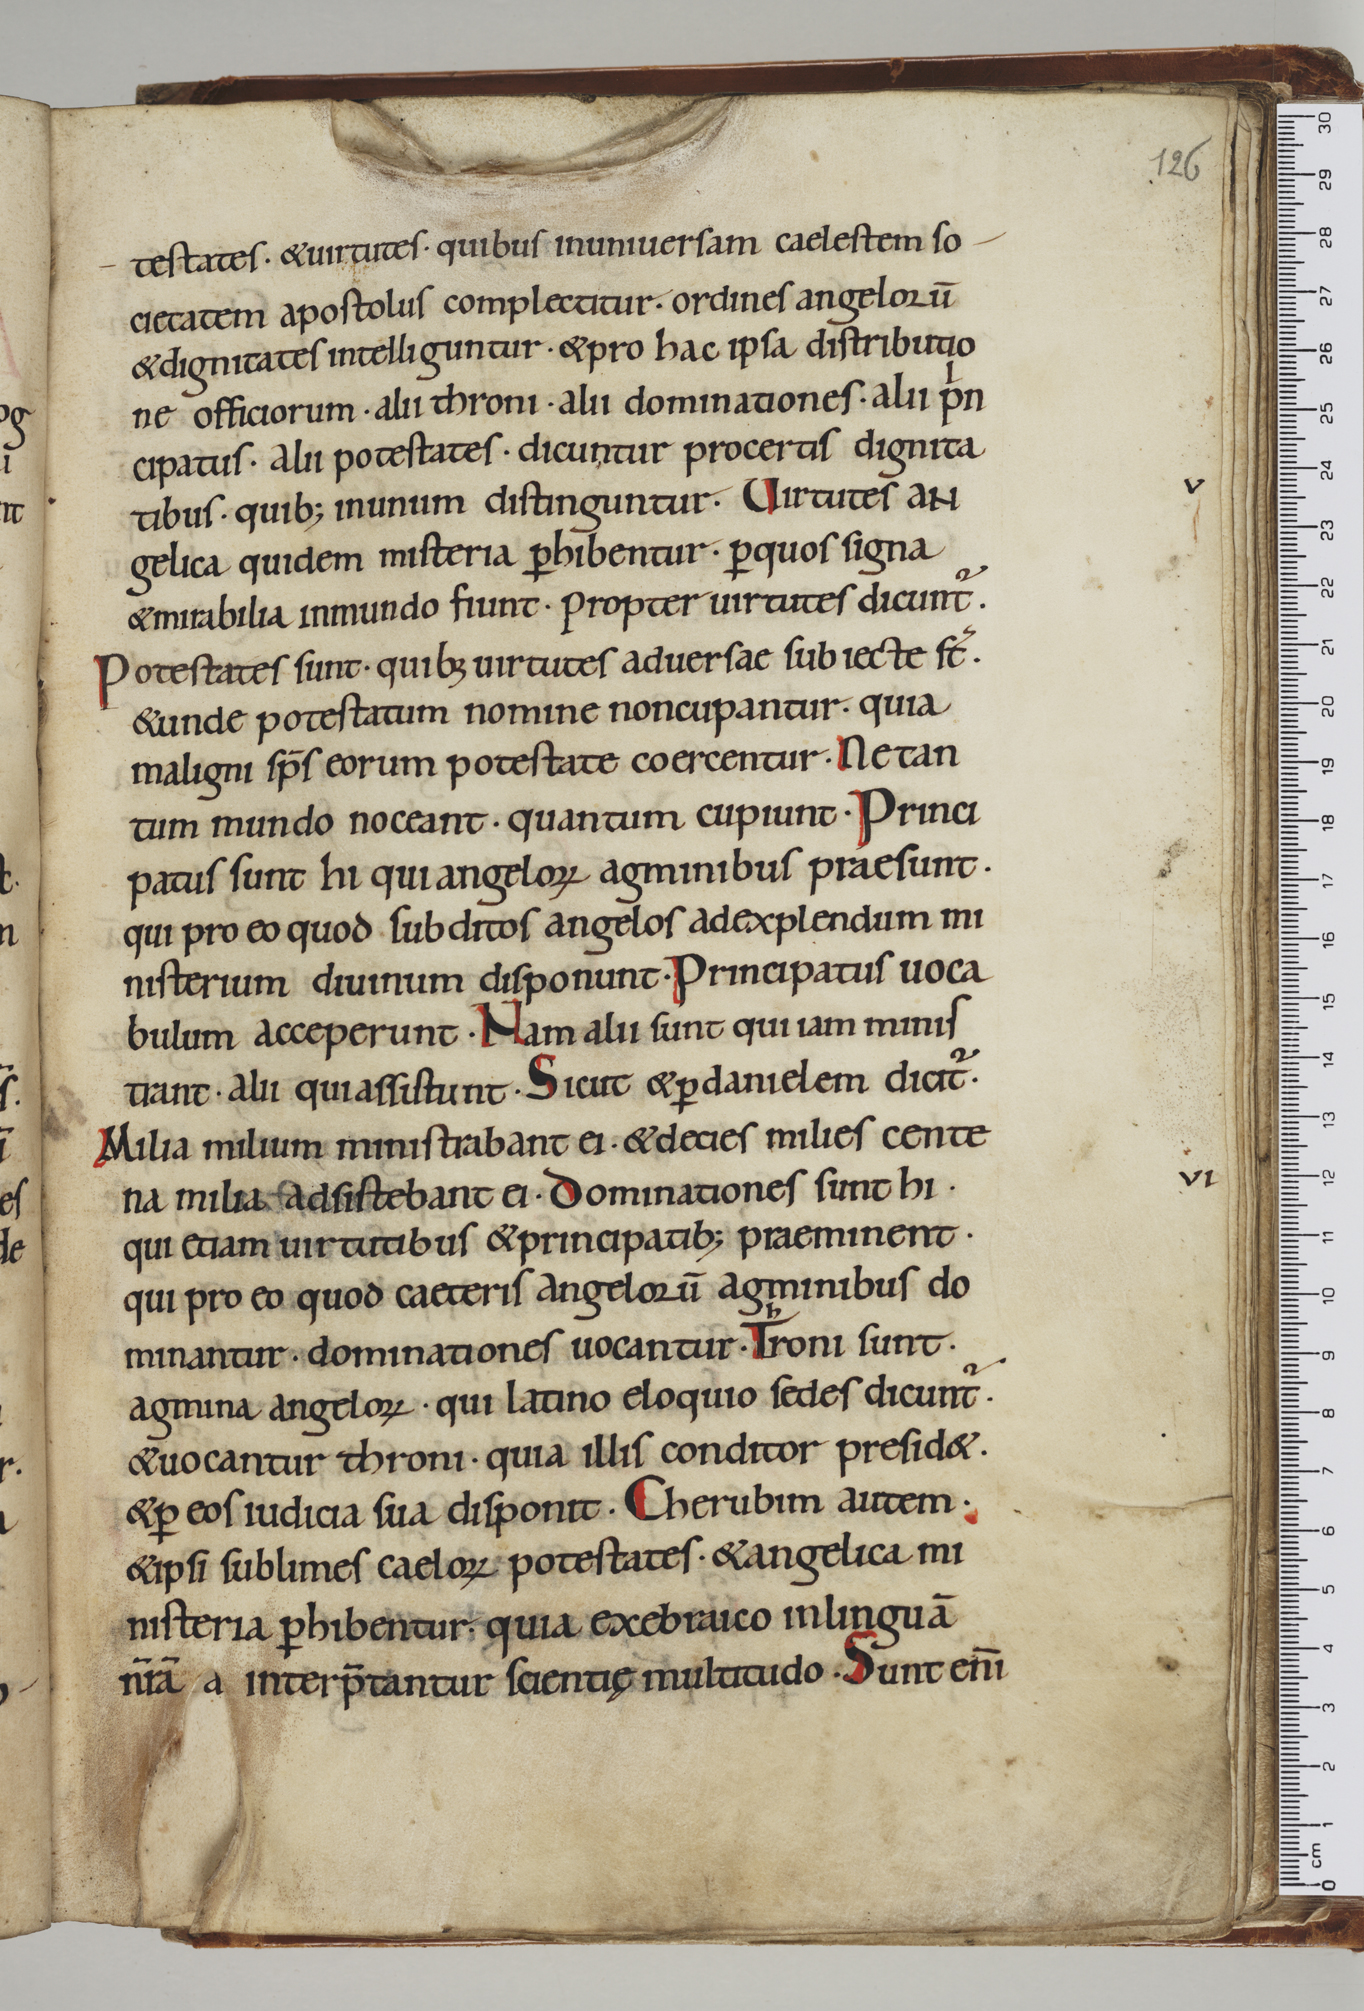 126
testates· &uirtutes· quibus inuniuersam caelestem so
cietatem apostolus complectitur· ordines angelorū
&dignitates intelliguntur· &pro hac ipsa distributio
ne officiorum· alii throni· alii dominationes· alii pͥn
cipatus· alii potestates· dicuntur procertis dignita
tibus· quib; inunum distinguntur· Uirtutes an
v
gelica quidem misteria ꝑhibentur· ꝑquos signa
&mirabilia inmundo fiunt· propter uirtutes dicunt᷑·
Potestates sunt· quibꝫ uirtutes aduersae subiecte st̄·
&unde potestatum nomine noncupantur· quia
maligni sp̄s eorum potestate coercentur· Ne tan
tum mundo noceant· quantum cupiunt· Princi
patus sunt hi qui angeloꝝ agminibus praesunt·
qui pro eo quod subditos angelos adexplendum mi
nisterium diuinum disponunt· Principatus uoca
bulum acceperunt· Nam alii sunt qui iam minis
trant· alii qui assistunt· Sicut &ꝑdanielem dicit᷑·
Milia milium ministrabant ei· &decies milies cente
na milia adsistebant ei· Dominationes sunt hi·
vi
qui etiam uirtutibus &principatib; praeminent·
qui pro eo quod caeteris angelorū agminibus do
minantur· dominationes uocantur· Tͪroni sunt·
agmina angeloꝝ· qui latino eloquio sedes dicunt᷑·
&uocantur throni· quia illis conditor presid&·
&ꝑ eos iudicia sua disponit· Cherubim autem·
&ipsi sublimes caeloꝝ potestates· &angelica mi
nisteria ꝑhibentur· quia exebraico inlinguā
nr̄ā a interp̄tantur scientię multitudo· Sunt eni̅